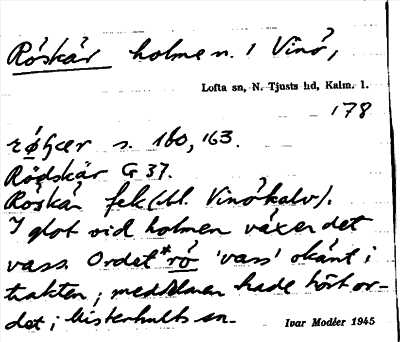 Röskär holme n. i Vinö,
Lofta sn, N. Tjusts hd, Kalm. l.
178
s. 160, 163.
Rödskär G 37.
Röskär fek (tll. Vinökalv).
I glot vid holmen växer det
vass. Ordet *rö 'vass' okänt i
trakten; meddelaren hade hört or-
det i Misterhults sn.
Ivar Modéer 1945